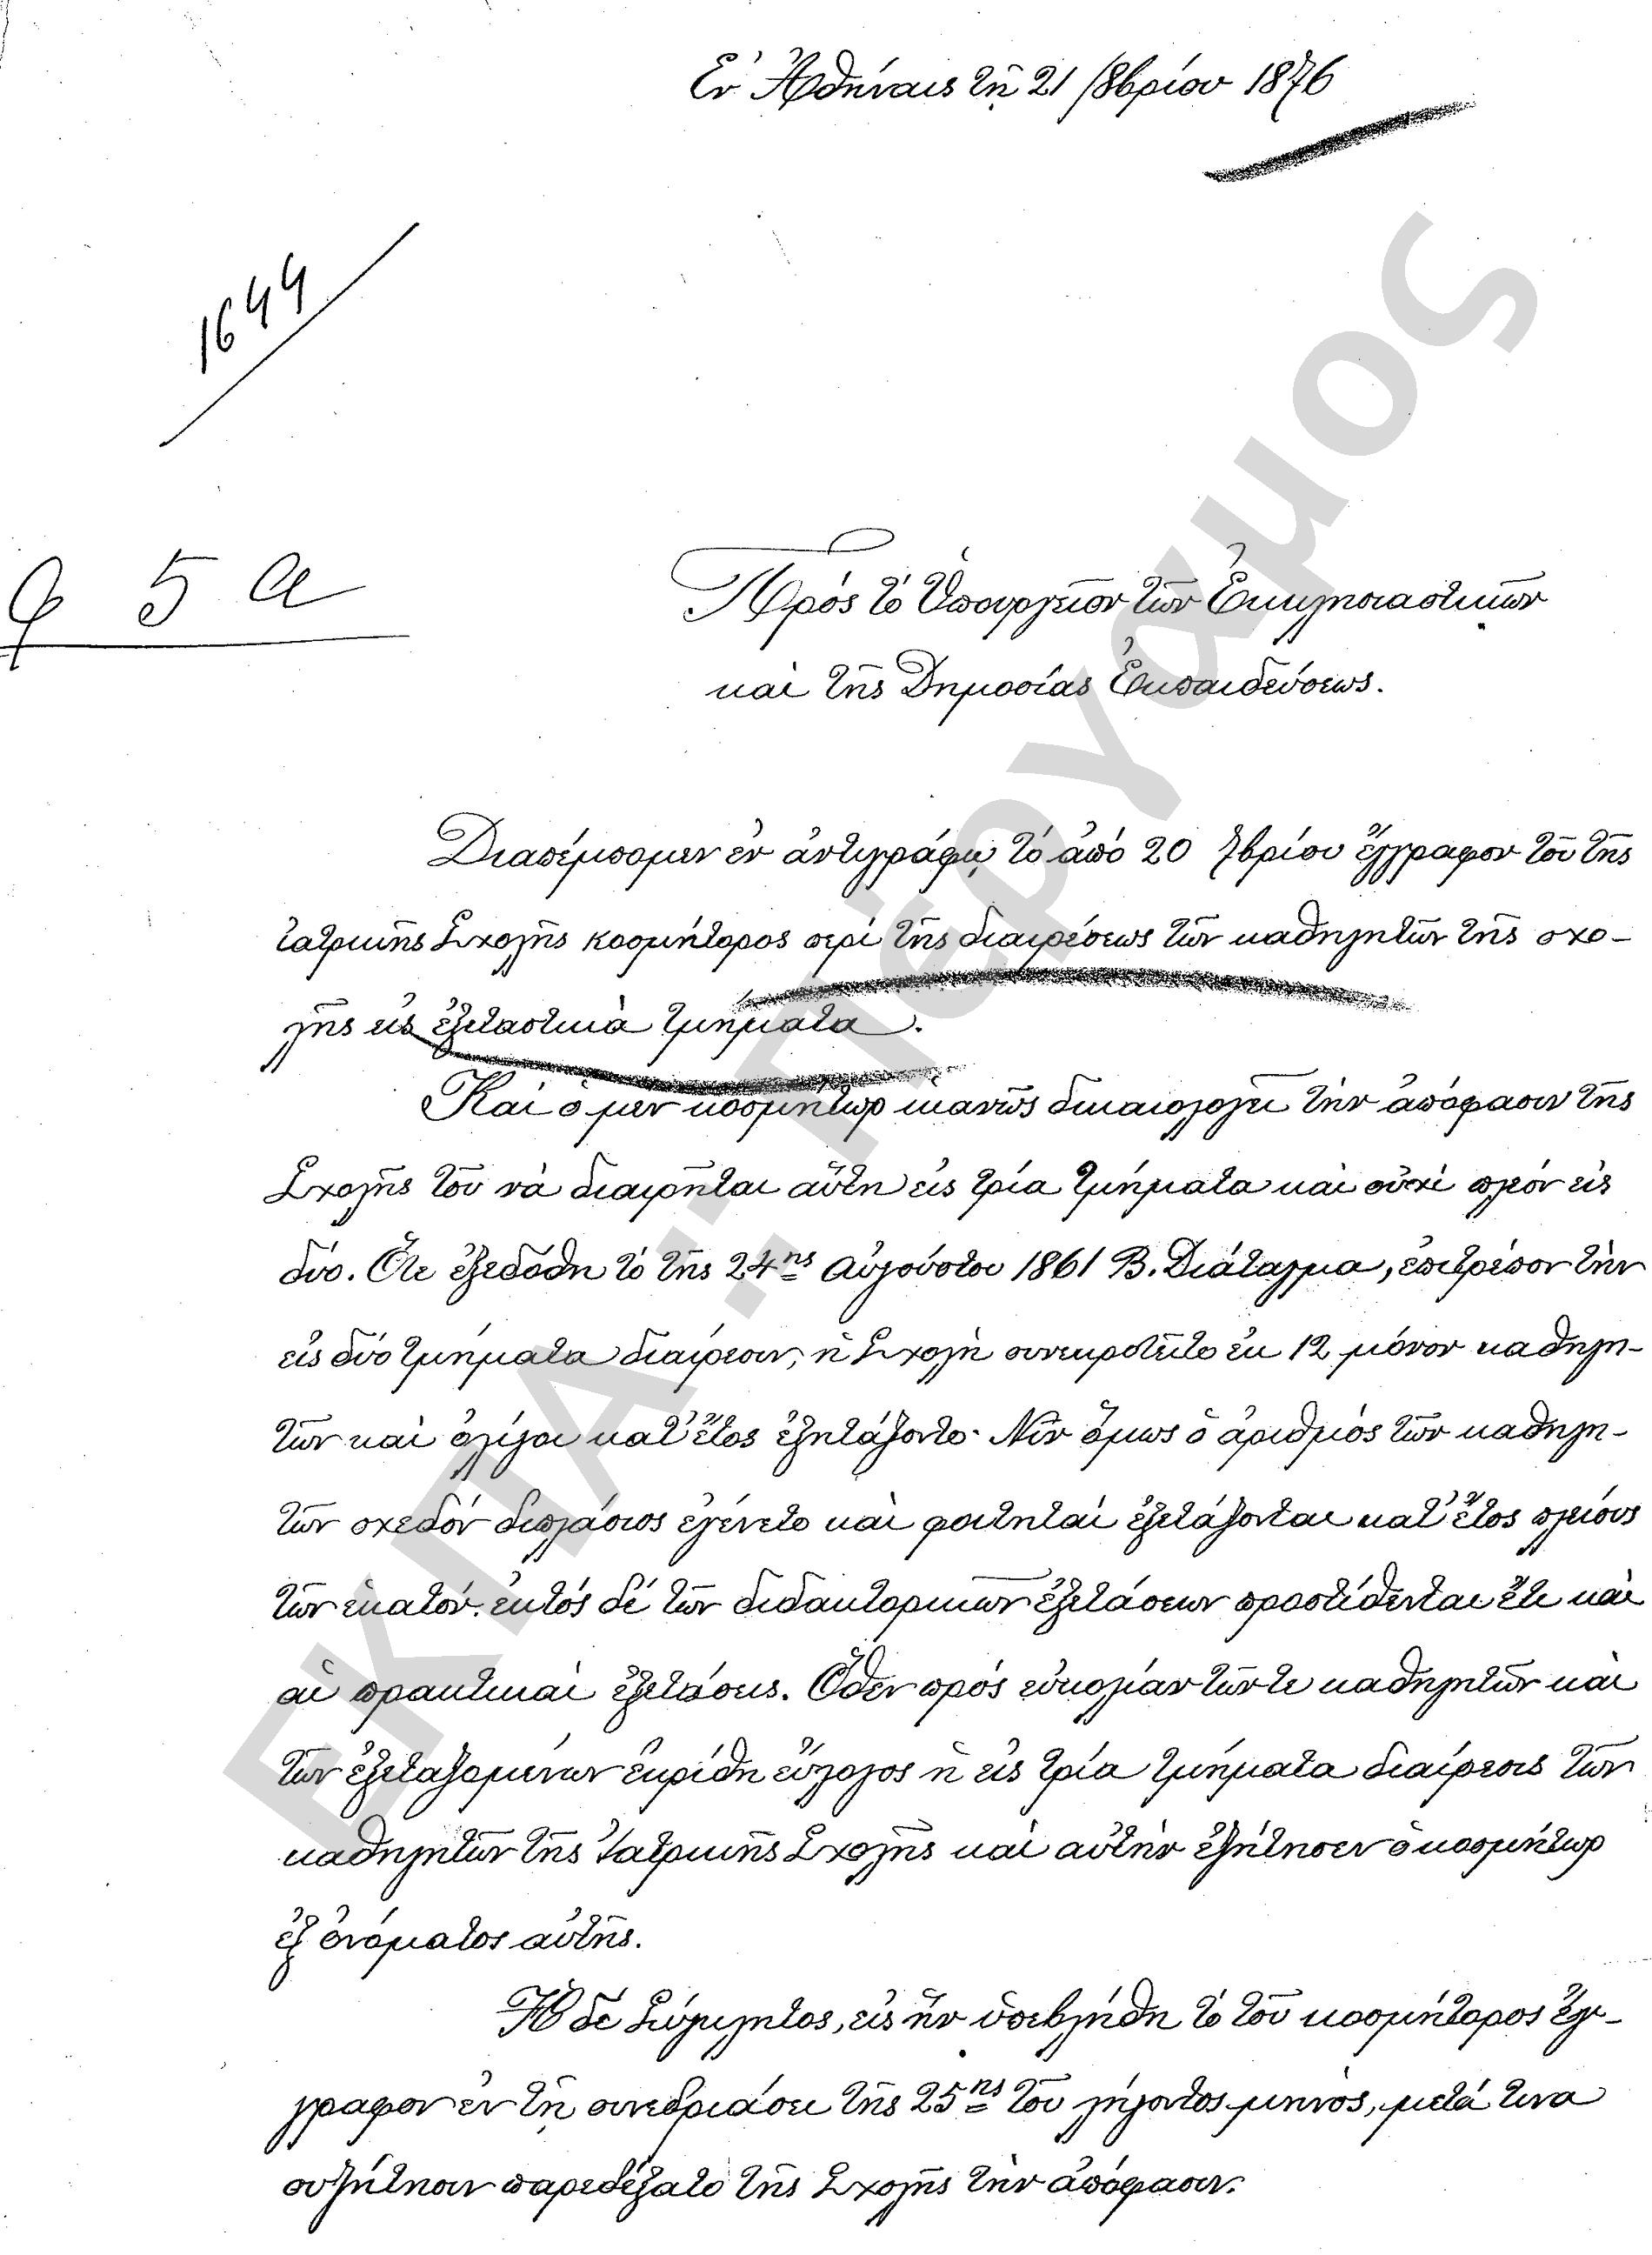 Ἐν Ἀθήναις τῇ 21 /8βρίου 1876
1644
φ 5 α
Πρὸς τὸ Ὑπουργεῖον τῶν Ἐκκλησιαστικῶν
καὶ τῆς Δημοσίας Ἐκπαιδεύσεως.
Διαπέμπομεν ἐν ἀντιγράφῳ τὸ ἀπὸ 20 7βρίου ἔγγραφον τοῦ τῆς
ἰατρικῆς Σχολῆς κοσμήτορος περὶ τῆς διαιρέσεως τῶν καθηγητῶν τῆς σχο-
λῆς εἰς ἐξεταστικὰ τμήματα.
Καὶ ὁ μὲν κοσμήτωρ ἱκανῶς δικαιολογεῖ τὴν ἀπόφασιν τῆς
Σχολῆς τοῦ νὰ διαιρῆται αὕτη εἰς τρία τμήματα καὶ οὐχὶ πλέον εἰς
δύο. Ὅτε ἐξεδόθη τὸ τῆς 24ης Αὐγούστου 1861 Β. Διάταγμα, ἐπιτρέπον τὴν
εἰς δύο τμήματα διαίρεσιν, ἡ Σχολὴ συνεκροτεῖτο ἐκ 12 μόνον καθηγη-
τῶν καὶ ὀλίγοι κατ' ἔτος ἐξητάζοντο· Νῦν ὅμως ὁ ἀριθμὸς τῶν καθηγη-
τῶν σχεδὸν διπλάσιος ἐγένετο καὶ φοιτηταὶ ἐξετάζονται κατ' ἔτος πλείους
τῶν ἑκατόν. ἐκτὸς δὲ τῶν διδακτορικῶν ἐξετάσεων προστίθενται ἔτι καὶ
αἱ πρακτικαὶ ἐξετάσεις. Ὅθεν πρὸς εὐκολίαν τῶν τε καθηγητῶν καὶ
τῶν ἐξεταζομένων ἐκρίθη εὔλογος ἡ εἰς τρία τμήματα διαίρεσις τῶν
καθηγητῶν τῆς Ἰατρικῆς Σχολῆς καὶ αὐτὴν ἐζήτησεν ὁ κοσμήτωρ
ἐξ ὀνόματος αὐτῆς.
Ἡ δὲ Σύγκλητος, εἰς ἣν ὑπεβλήθη τὸ τοῦ κοσμήτορος ἔγ-
γραφον ἐν τῇ συνεδριάσει τῆς 25ης τοῦ λήγοντος μηνὸς, μετά τινα
συζήτησιν παρεδέξατο τῆς Σχολῆς τὴν ἀπόφασιν.
ΕΚΠΑ: Πέργαμος